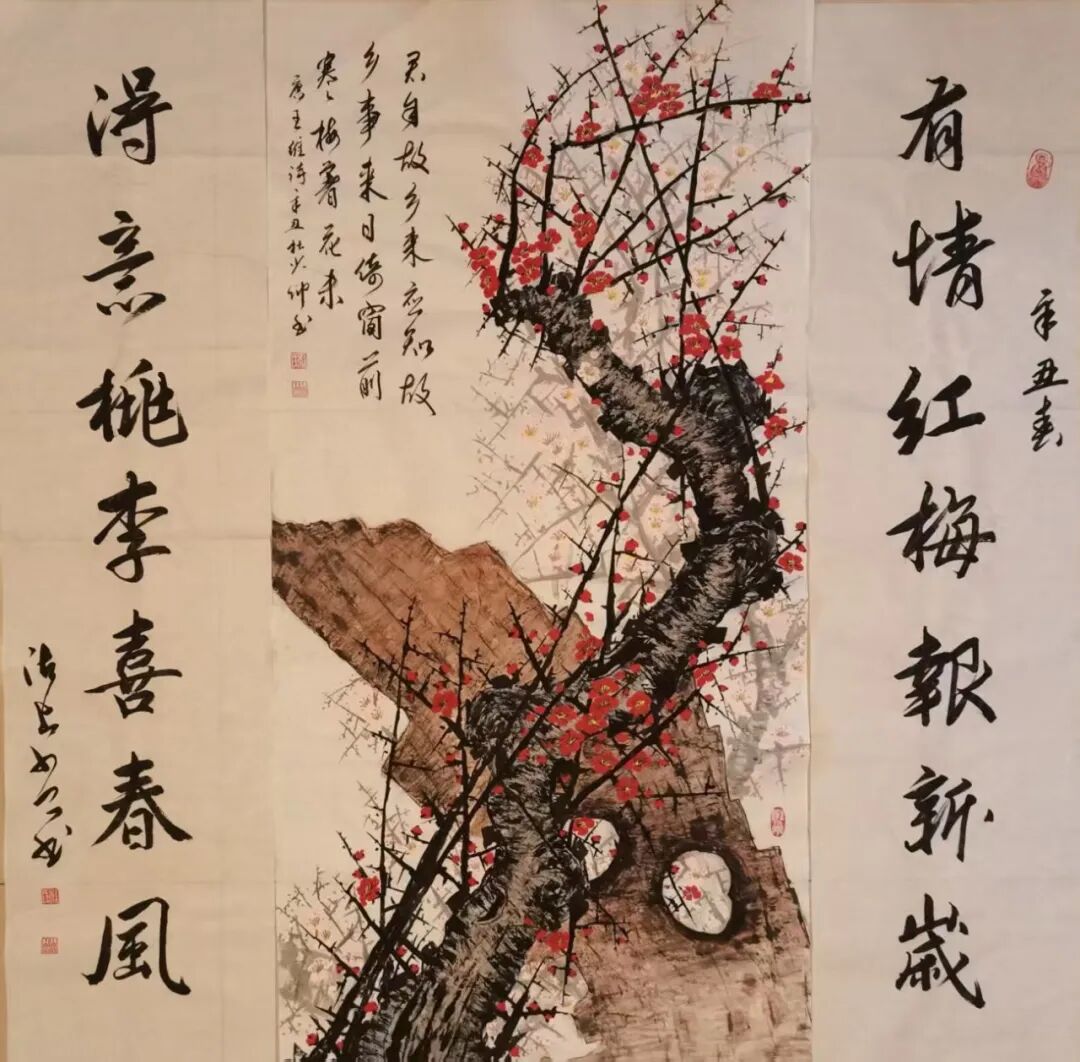 辛丑春
有情红梅報新歲
君自故乡来应知故
乡事来日绮窗前
寒梅著花未
唐王维诗辛丑杜少仲书
得意桃李喜春風